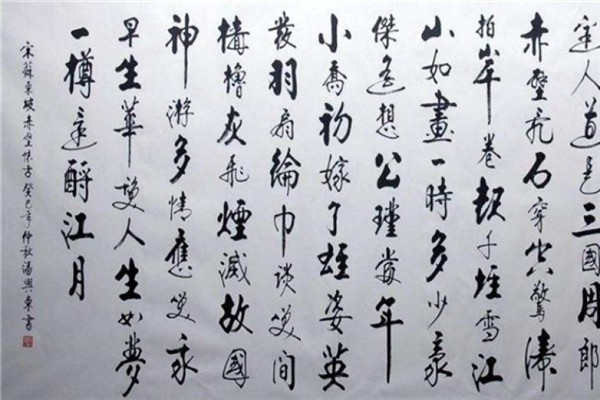 邊人道是三國周郎
赤壁亂石穿空驚濤
拍岸卷起千堆雪江
山如畫一時多少豪
傑遙想公瑾當年
小喬初嫁了雄姿英
發羽扇綸巾談笑間
檣櫓灰飛煙滅故國
神游多情應笑我
早生華髮人生如夢
一樽還酹江月
宋蘇東坡赤壁懷古癸巳年仲秋潘興東書